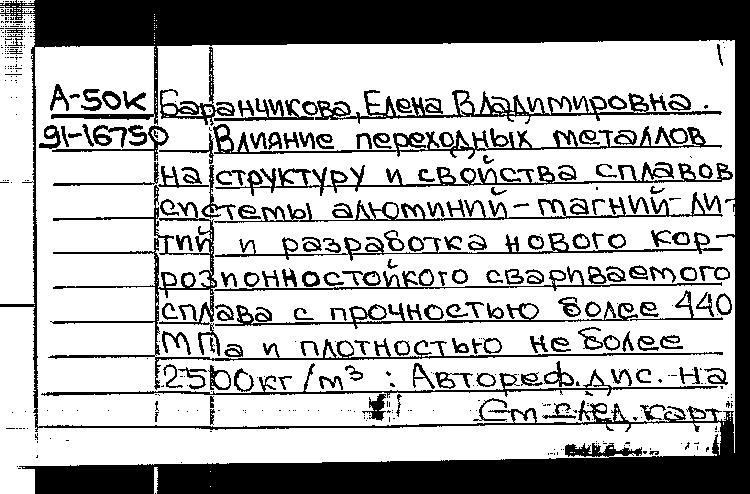 А-50к Баранчикова, Елена Владимировна.
91-16750 Влияние переходных металлов
на структуру и свойства сплавов
системы алюминий-магний-ли-
тий и разработка нового кор-
розионностойкого свариваемого
сплава с прочностью более 440
МПа и плотностью не более
2500кг/м³ : Автореф. дис. на
См. след. карт